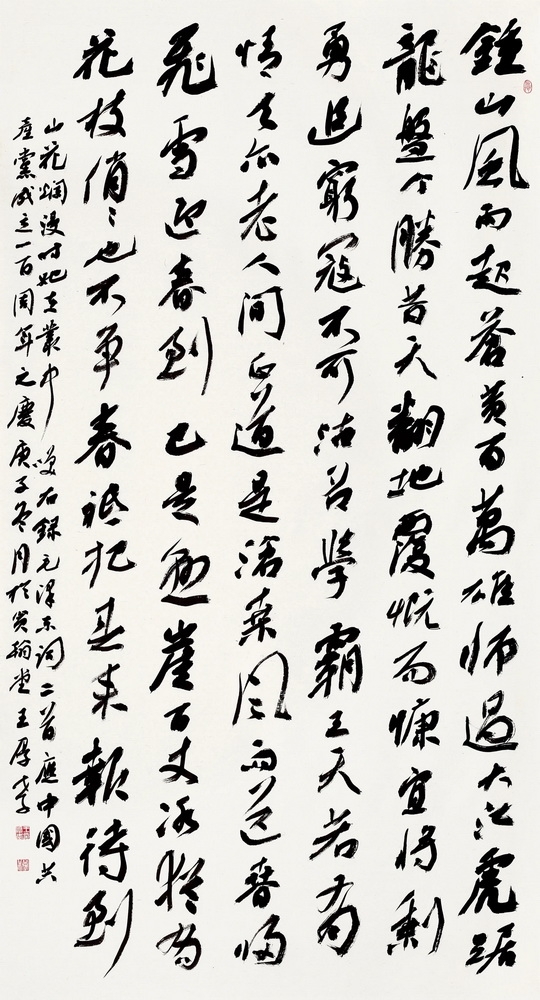 鍾山風雨起蒼黄百萬雄师過大江虎踞
龍盤今勝昔天翻地覆慨而慷宜将剩
勇追窮寇不可沽名學霸王天若有
情天亦老人间正道是滄桑風雨送春归
飛雪迎春到已是懸崖百丈冰猶有
花枝俏々也不争春祗把春来報待到
山花爛漫时她在叢中咲右録毛澤东词二首應中國共
產黨成立一百周年之慶庚子冬月於翰堂王